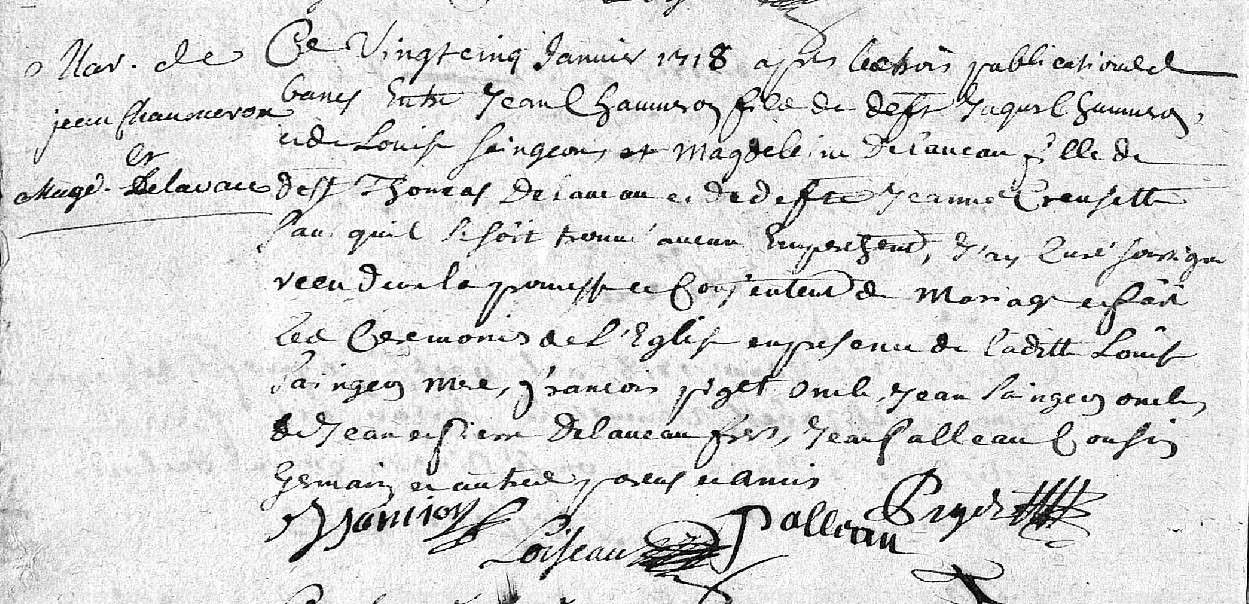 Mar. de
jean Chaumeron
et
Magd. Delavau
Ce Vingt cinq Janvier 1718 apres les trois publications de
bancs Entre Jean Chaumeron fils de deft Jaques Chaumeron,
et de Louise Saingeon, et Magdeleine Delaueau fille de
deft Thomas Delaueau et de defte Jeanne Creusette
sans quil se soit trouué aucun Empeschent, J'ay Curé soussigné
receu deux la promesse et Consentent de Mariage et fait
les Ceremonies de L'Eglise en presence de laditte Louise
Saingeon Mere, françois piget oncle, Jean Saingeon oncle,
de Jean et Pierre Delaueau freres, Jean Palleau Cousin
Germain et autres parens et amis
Loiseau
Palleau
Piget